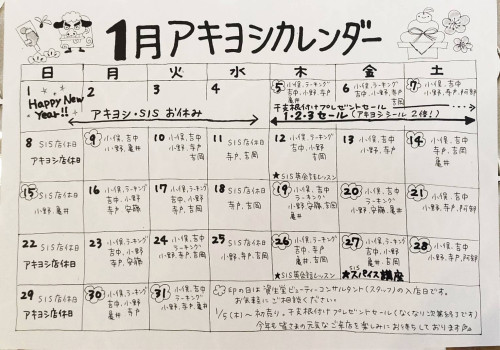 1月アキヨシカレンダー
日 月 火 水 木 金 土
1 Happy New Year!!
2
3
4
アキヨシ・SIS お休み
5 小保、ラーキング
吉中、小野、亀井
6 小保、ラーキング
吉中、小野、寺戸
7 小保、吉中
小野、寺戸、阿部
干支根付けプレゼントセール
1・2・3セール(アキヨシシール2倍!)
8 SIS店休日
アキヨシ店休日
9 小保、吉中
小野、亀井
10 小保、吉中
小野、寺戸
吉岡
11 SIS店休日
寺戸、吉岡
12 小保、吉中
小野、亀井
吉岡
★SIS英会話レッスン
13 小保、吉中
小野、寺戸
亀井
14 小保、吉中
小野、寺戸
亀井
15 SIS店休日
小野、亀井
16 小保、ラーキング
吉中、小野
寺戸、安藤
17 小保、ラーキング
吉中、小野
寺戸、吉岡
18 SIS店休日
寺戸、吉岡
19 小保、ラーキング
吉中、小野
安藤、吉岡
★SIS英会話レッスン
20 小保、ラーキング
吉中、小野
安藤、亀井
21 小保、吉中
小野、寺戸、阿部
22 SIS店休日
アキヨシ店休日
23 小保、ラーキング
吉中、小野
寺戸、安藤
24 小保、吉中
ラーキング
小野、寺戸、吉岡
25 SIS店休日
小野、寺戸
26 小保、ラーキング
吉中、小野
寺戸、亀井
★SIS英会話レッスン
27 小保、ラーキング
吉中、小野
亀井、吉岡
SIS
★スパイス講座
28 小保、吉中
小野、寺戸
亀井
29 SIS店休日
アキヨシ店休日
30 小保、ラーキング
吉中、小野
亀井
31 小保、吉中
ラーキング
小野、寺戸
印の日は資生堂ビューティーコンサルタント(スタッフ)の入店日です。
お気軽にご相談ください。
1/5(木)〜初売り。干支根付けプレゼントセール(なくなり次第終了です)
今年も皆さまの元気なご来店を楽しみにお待ちしております。